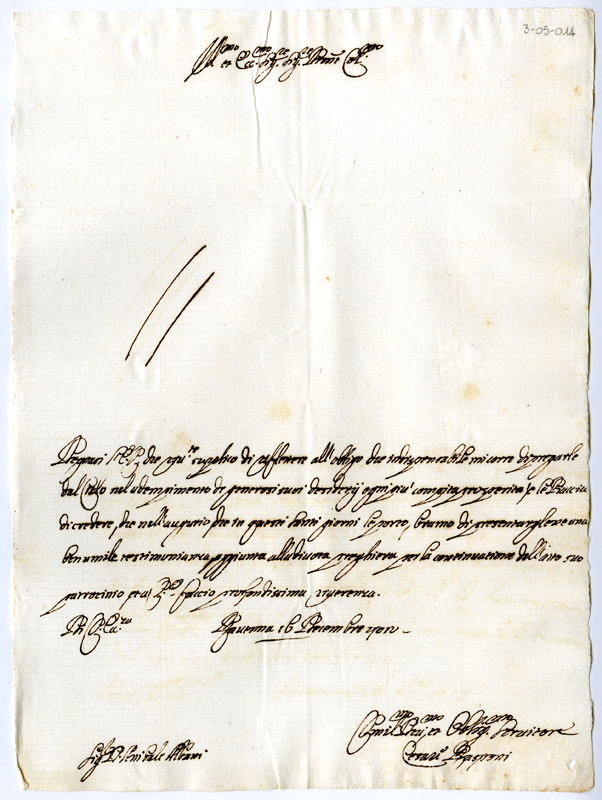 3-05-014
Ill.mo et Ecc.mo Sig.re Sig.re Prone Col.mo
Degnarsi V. E. che qui supplico di riflettere all'obligo che indispensabile mi corre di pregarle
dal Cielo nell'adempimento de generosi suoi desiderij ogni più compita prosperità, e le piaccia
di credere, che nell'augurio, che in questi santi giorni le porto, bramo di presentargliene una
ben umile testimonianza, aggiunta alla divota preghiera per la continuatione dell'alto suo
patrocinio, e a V. E. faccio profondissima riverenza.
Di V. Ecc.za Ravenna 16 Decembre
Humil.mo Dev.mo et Oblig.mo Servitore
Sig.r D.